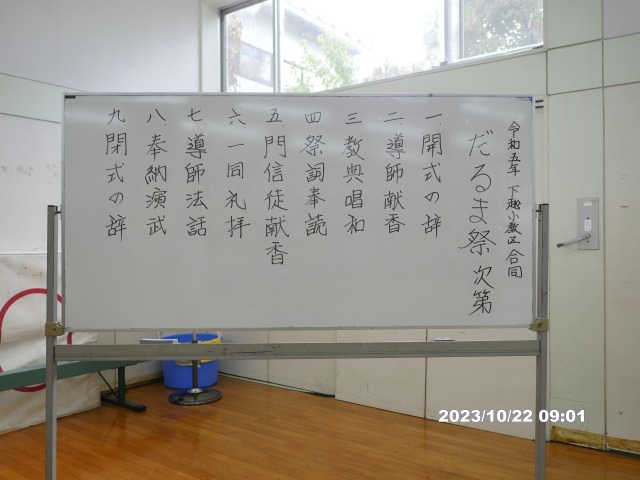 令和五年 下越小教区合同
だるま祭 次第
一、開式の辞
二、導師献香
三、教典唱和
四、祭詞奉読
五、門信徒献香
六、一同礼拝
七、導師法話
八、奉納演武
九、閉式の辞
2023/10/22 09:01